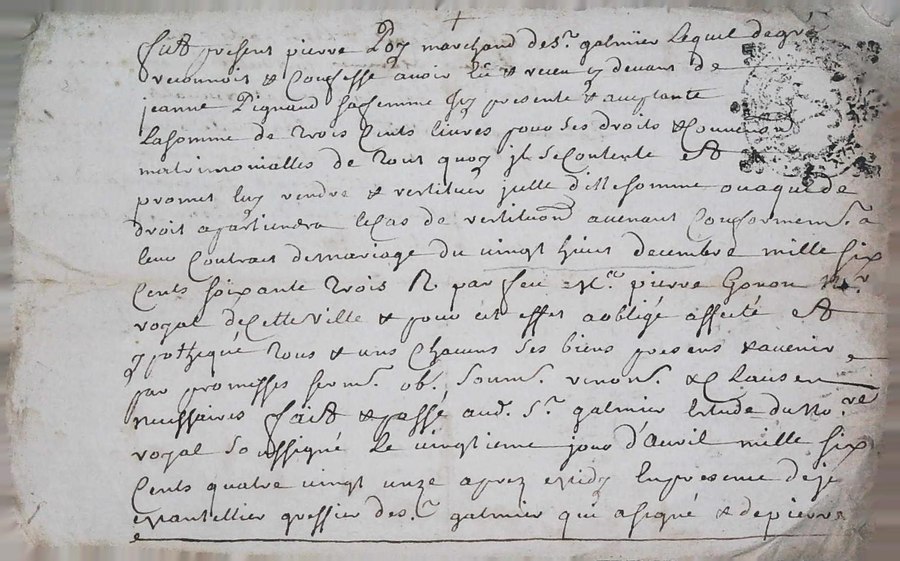 fut present pierre Poy marchand de st galmier Lequel de gre
reconnois & Confesse avoir Eu & receu cy devant de
jeanne Pignand sa femme Icy presente & aceptante
La somme de Trois Cents livres pour ses droits &
matrimonialles de Tout quoy jl se Contente Et
promet luy rendre & restituer jcelle ditte somme ou a qui de
droit apartiendra le Cas de restituon avenant Conformemt a
leur Contract de mariage du vingt huict decembre mille six
Cents soixante Trois R par feu Me pierre Gonon
royal de Cette Ville & pour cet effet a obligé affecté Et
ypothequé Tous & uns Chacuns ses biens presens & avenir
par promesses sermt. ob. soumt. renont. & Clauses
necessaires faict & passé aud. st. galmier Estude du Nore
royal soussigné Le vingtieme jour d'Avril mille six
Cents quatre vingt unze aprez midy En presence de
greffier de st galmier qui a signé & de pierre